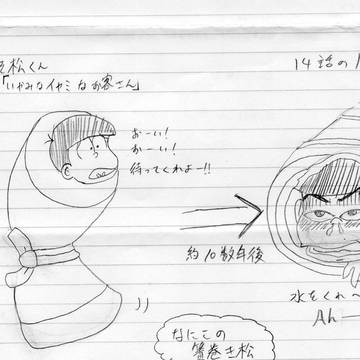 松くん
「いやみなイヤミなお客さん」
14話の
おーい!
おーい!
待ってくれよー!!
約10数年後
水をくれ〜
Ah—
なにこの
簀巻き松